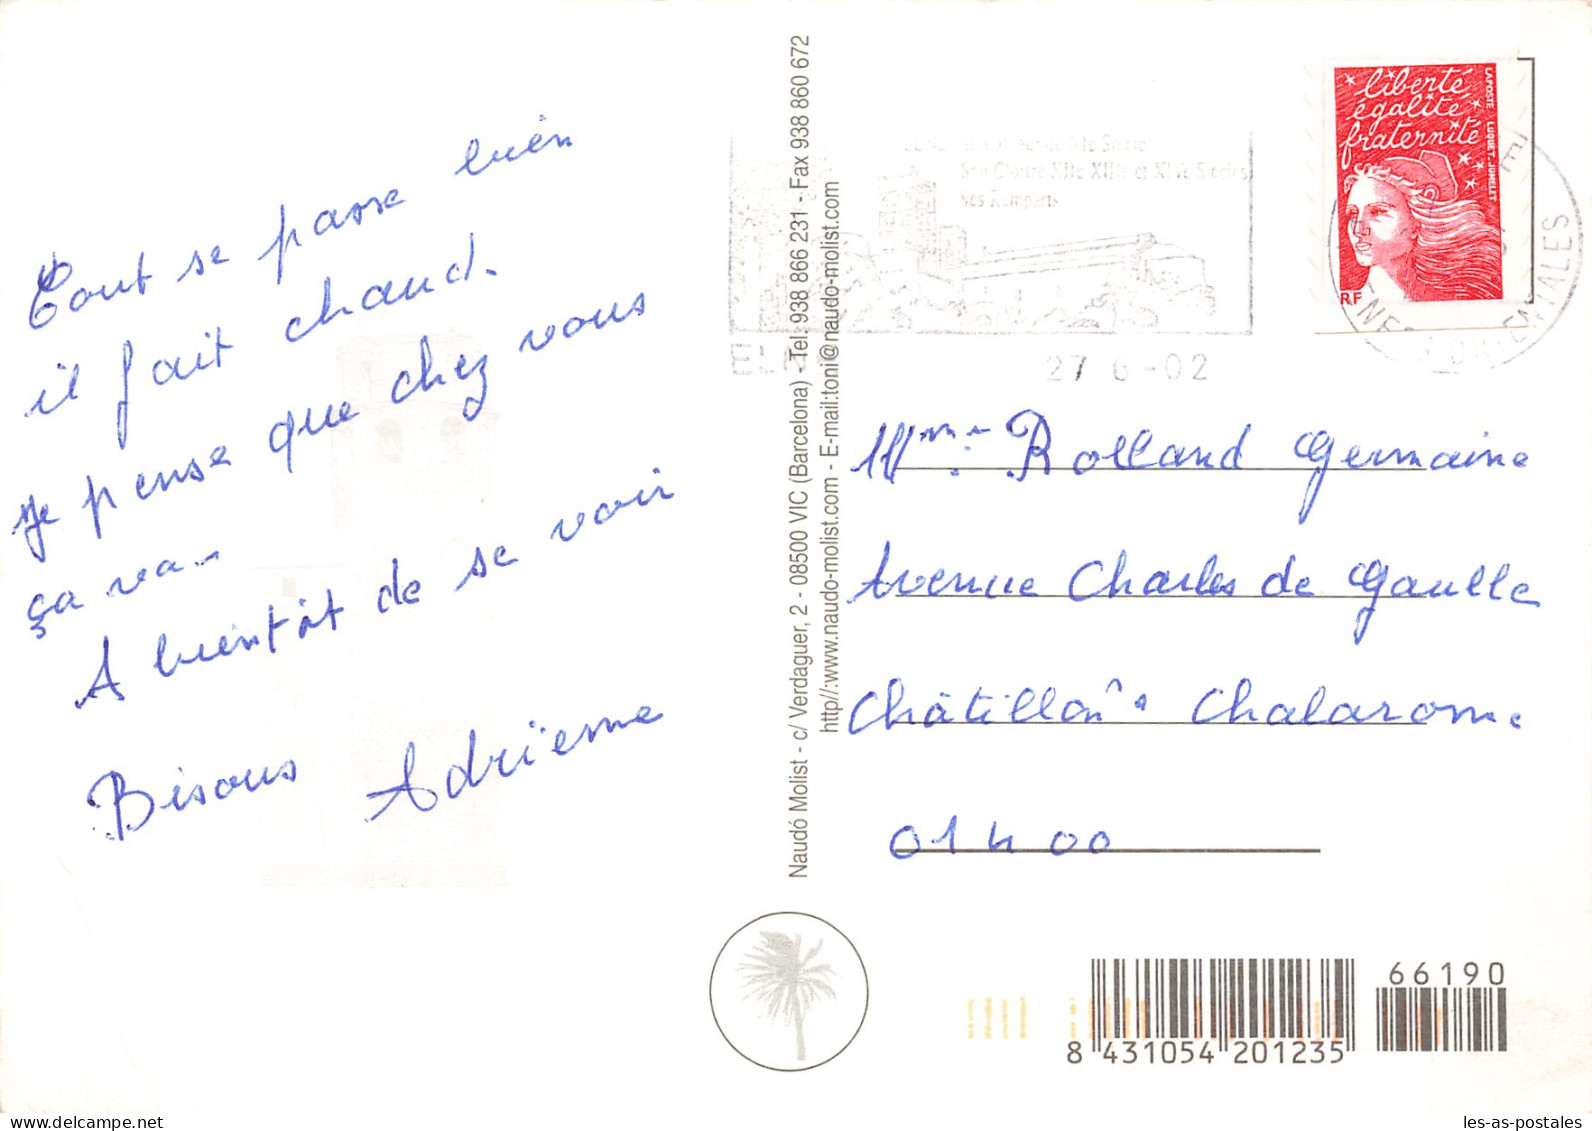 Tout se passe bien
il fait chaud.
Je pense que chez vous
ça va..
A bientôt de se voir
Bisous Adrienne
Naudó Molist - c/ Verdaguer, 2 - 08500 VIC (Barcelona) - Tel. 938 866 231 - Fax 938 860 672
http//:www.naudo-molist.com - E-mail:toni@naudo-molist.com
Son Cloître XIIe XIIIe et XIVe Siècles
Ses Remparts
27 6 -02
liberté
égalité
fraternité
LAPOSTE LUQUET.JUMELET
RF
Mme Rolland Germaine
Avenue Charles de Gaulle
Châtillon s Chalaronne
01400
66190
8 431054 201235
les-as-postales